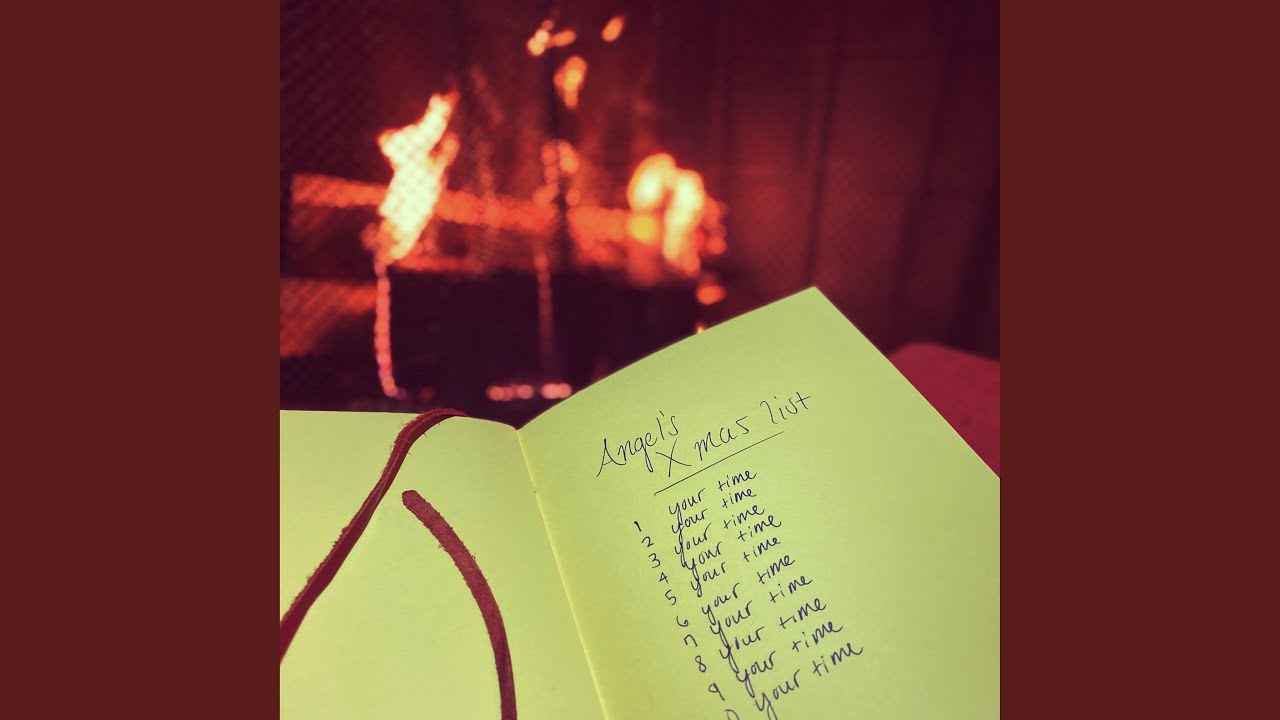 Angel's
Xmas list
1 your time
2 your time
3 your time
4 your time
5 your time
6 your time
7 your time
8 your time
9 your time
0 your time